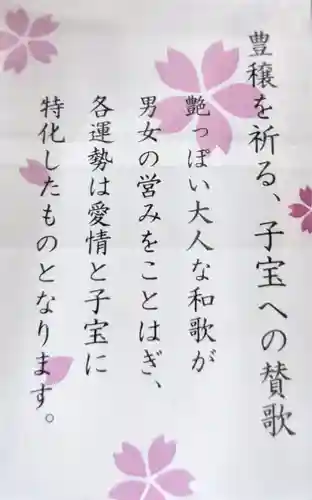 豊穣を祈る、子宝への賛歌
艶っぽい大人な和歌が
男女の営みをことほぎ、
各運勢は愛情と子宝に
特化したものとなります。